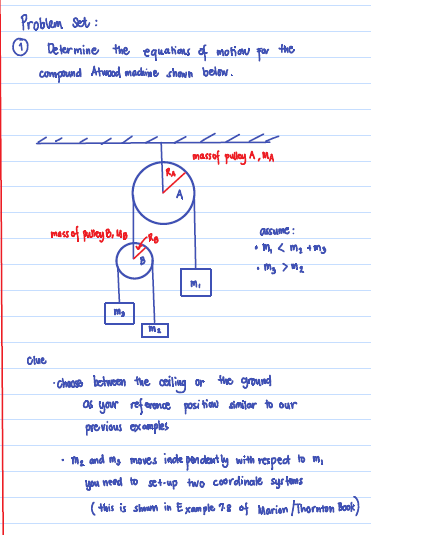 Problem Set :
① Determine the equations of motion for the
compound Atwood machine shown below.
mass of pulley A, MA
RA
A
mass of pulley B, MB
RB
B
assume :
• m₁ < m₂ + m₃
• m₃ > m₂
m₁
m₃
m₂
Clue
· choose between the ceiling or the ground
as your reference position similar to our
previous examples
· m₂ and m₃ moves independently with respect to m₁
you need to set-up two coordinate systems
(this is shown in Example 7.8 of Marion/Thornton Book)